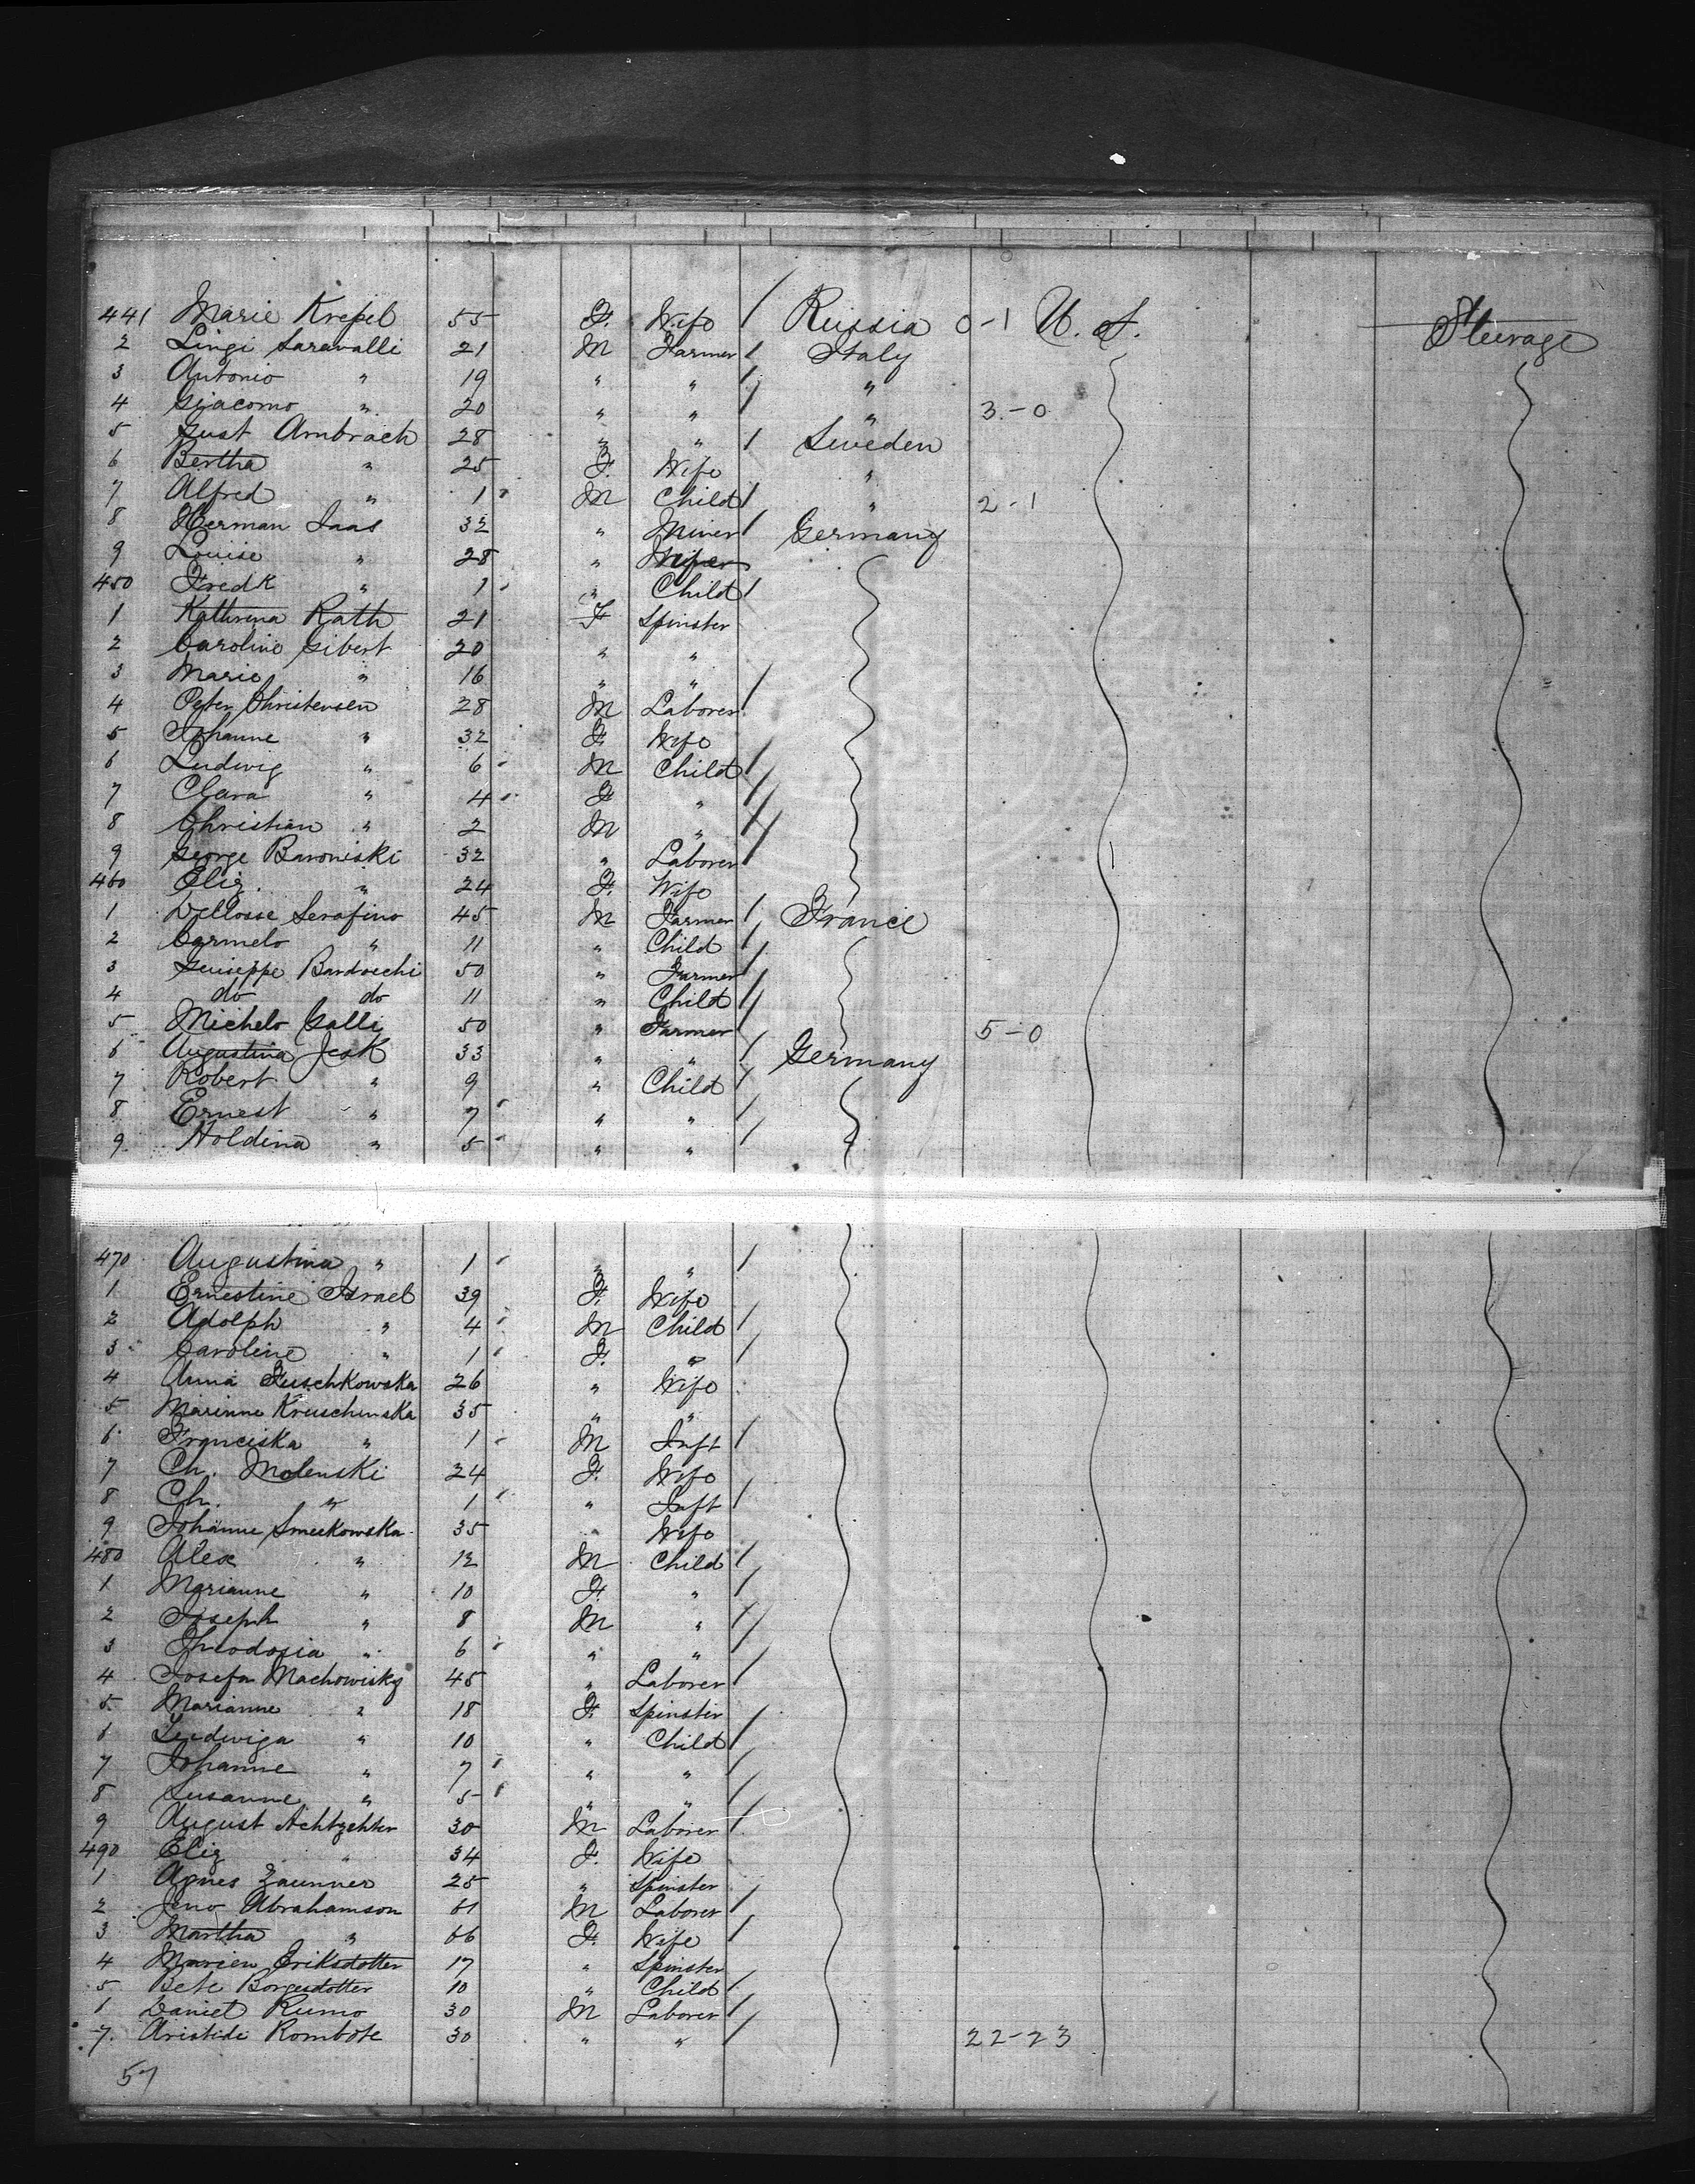 441 Marie Krepel 55 F. Wife / Russia 0-1 U. S. Steerage
2 Lingi Saravalli 21 M Farmer / Italy
3 Antonio " 19 " " / "
4 Giacomo " 20 " " / " 3-0
5 Gust Ambrach 28 " " / Sweden
6 Bertha " 25 F. Wife "
7 Alfred " 1 M Child / " 2-1
8 Herman Jaas 32 " Miner / Germany
9 Louise " 28 " Wife
450 Fredk " 1 " Child /
1 Kathrina Rath 21 F Spinster
2 Caroline Gibert 20 " "
3 Marie " 16 " "
4 Peter Christensen 28 M Laborer /
5 Johanne " 32 F. Wife
6 Ludwig " 6 M Child /
7 Clara " 4 F " /
8 Christian " 2 M " /
9 George Baroniski 32 " Laborer /
460 Eliz. " 24 F. Wife
1 Dellosse Serafino 45 M Farmer / France
2 Carmelo " 11 " Child /
3 Guiseppe Bardocchi 50 " Farmer /
4 do do 11 " Child /
5 Michelo Galli 50 " Farmer / 5-0
6 Augustina Jesk 33 " " / Germany
7 Robert " 9 " Child /
8 Ernest " 7 " " /
9 Holdina " 5 " " /
470 Augustina " 1 " " /
1 Ernestine Israel 39 F. Wife
2 Adolph " 4 M Child /
3 Caroline " 1 F. " /
4 Anna Fuschkowska 26 " Wife
5 Marinne Kruschinska 35 " "
6 Franciska " 1 M Inft /
7 Ch. Molenski 24 F. Wife
8 Ch. " 1 " Inft /
9 Johanne Smeekowska 35 " Wife
480 Alex " 12 M Child /
1 Marianne " 10 F. " /
2 Joseph " 8 M " /
3 Theodosia " 6 " " /
4 Josefa Machowisky 45 " Laborer /
5 Marianne " 18 F. Spinster
6 Ludwiga " 10 " Child /
7 Johanne " 7 " " /
8 Susanne " 5 " " /
9 August Achtzehter 30 M Laborer /
490 Eliz " 34 F. Wife
1 Agnes Zaunner 25 " Spinster
2 Jeno Abrahamson 61 M Laborer /
3 Martha " 66 F. Wife /
4 Marien Eriksdotter 17 " Spinster
5 Bete Borgesdotter 10 " Child /
1 Daniel Rumo 30 M Laborer /
7. Aristide Rombote 30 " " / 22-23
57